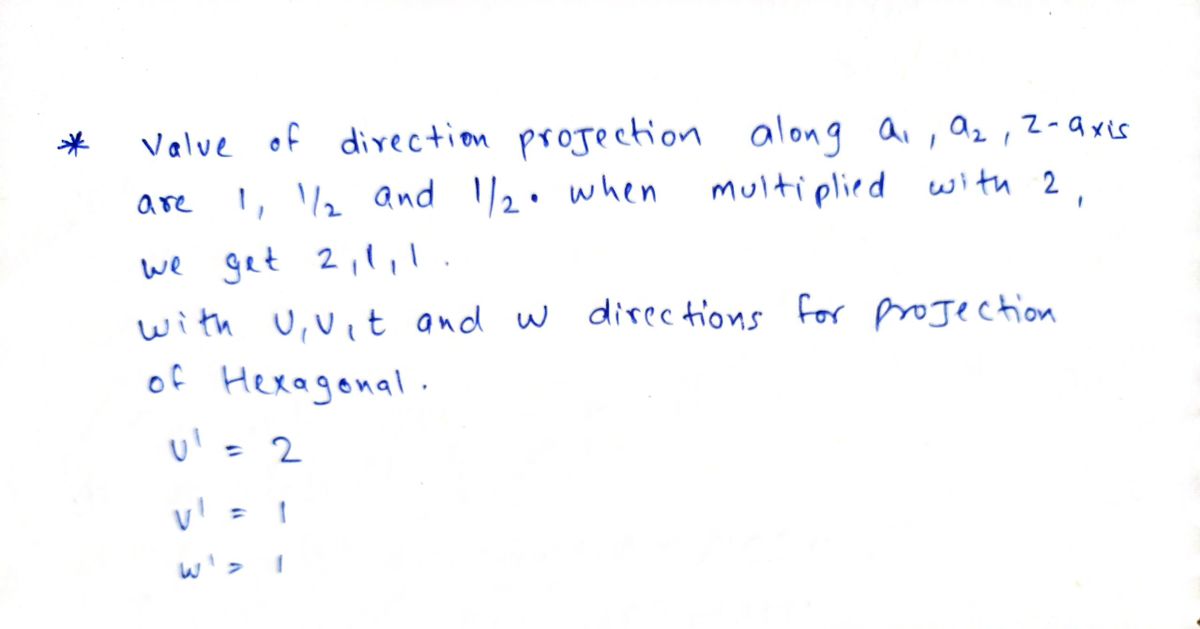 * Value of direction projection along a₁, a₂, z-axis
are 1, 1/2 and 1/2. when multiplied with 2,
we get 2,1,1.
with U,V,t and w directions for projection
of Hexagonal.
U' = 2
V' = 1
w' = 1